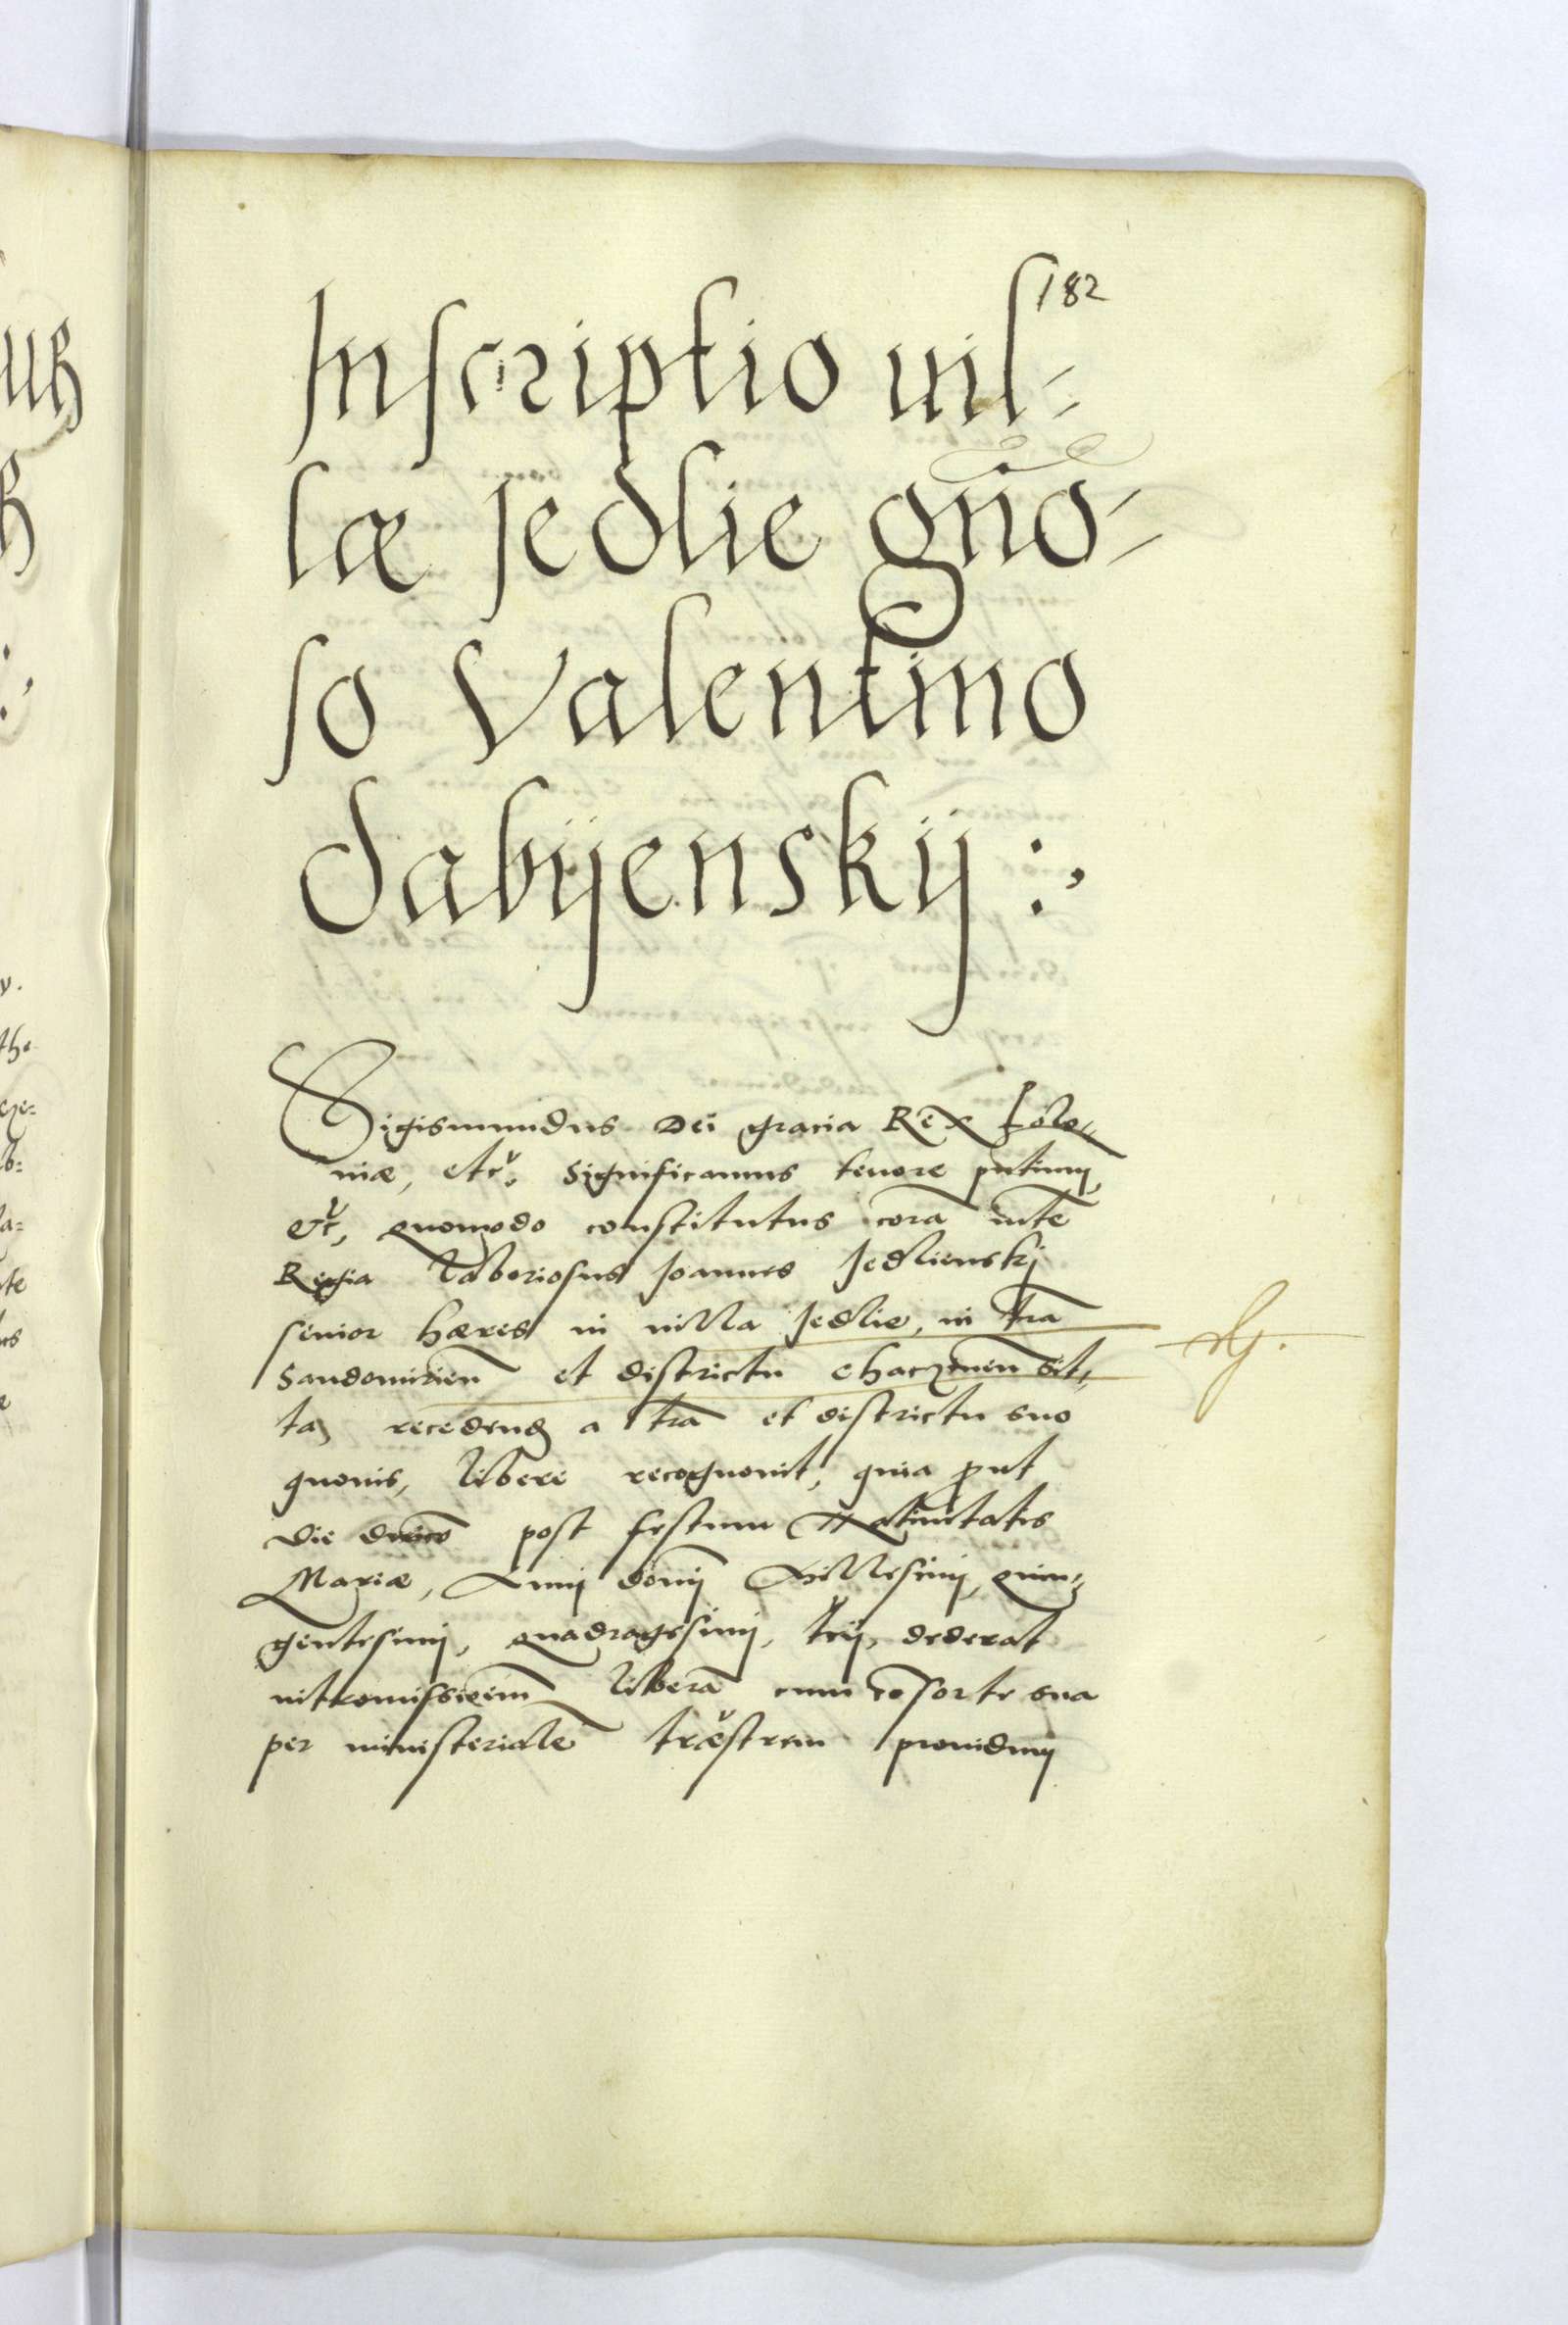 182
Inscriptio uil-
læ Jedlie gño-
so Valentino
Dabÿenskij :,
Sigismundus Dei gracia Rex Polo-
niæ, etc̃. Significamus tenore pñtium,
etc, quomodo constitutus corã mte
Regia laboriosus Joannes Jedlienskij
senior hæres in uilla Jedlie, in trã
Sandomirieñ et districtu Chaczineñ sit-
ta, recedend a trã et districtu suo
quouis, libere recognouit, quia put
die post festum Natiuitatis
Mariæ, Anni domĩj Millesimj, quin-
gentesimj, quadragesimj, trij, dederat
liberã cum cõsorte sua
per ministerialẽ trærẽstrem prouidum